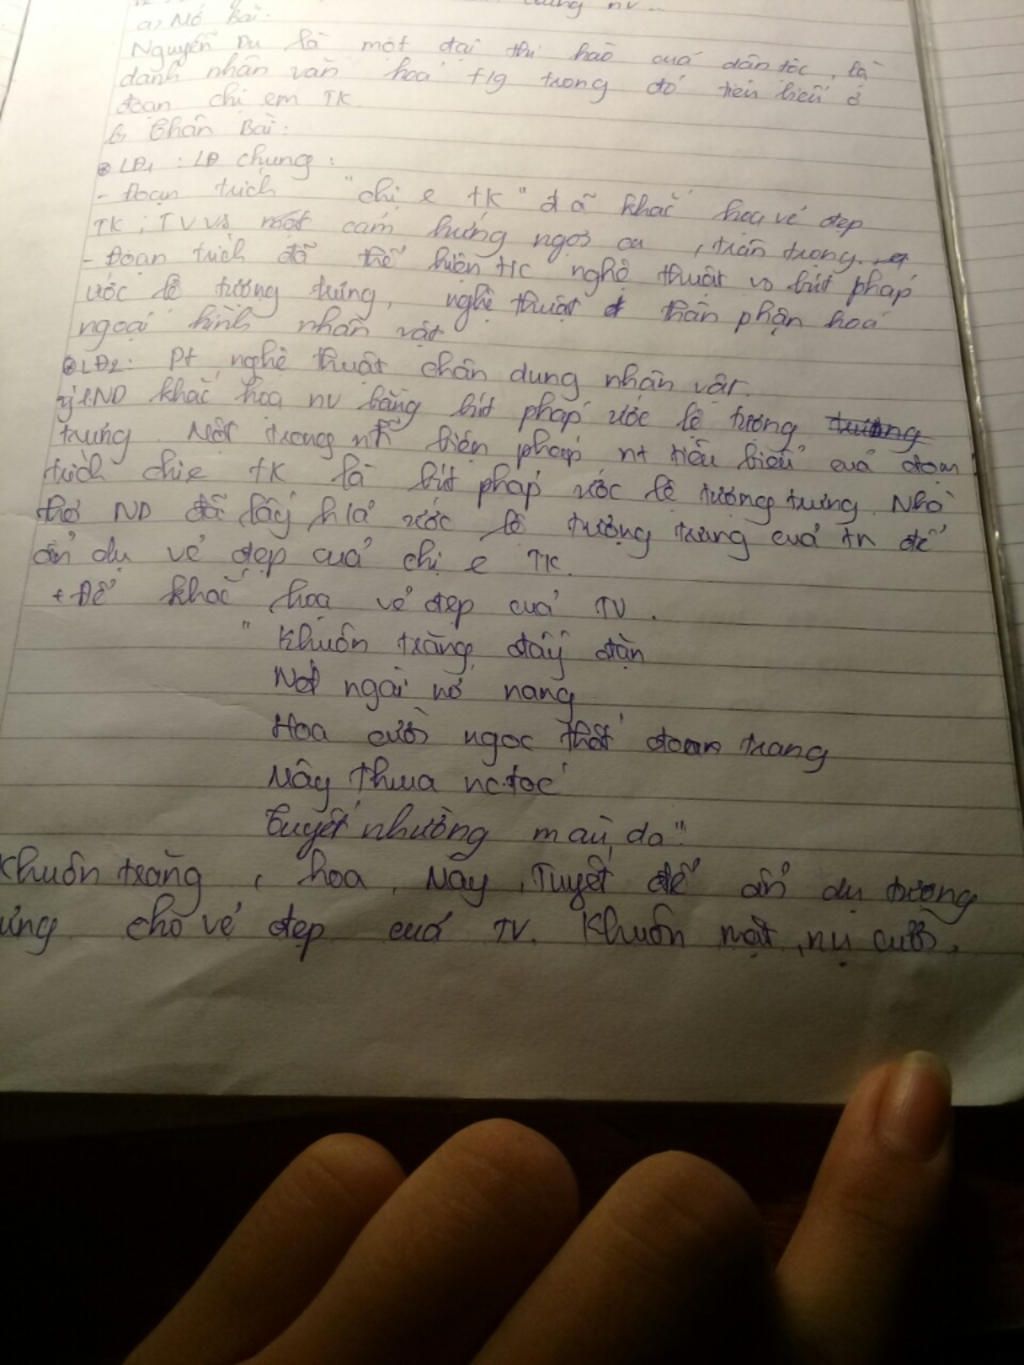 dung nv...
a) Mở Bài:
Nguyễn Du là một đại thi hào cuả dân tộc, là
danh nhân văn hoá t/g trong đó tiêu biểu ở
đoạn chị em TK
b, Thân Bài:
LĐ1 : LĐ chung :
- Đoạn trích "chị e TK" đã khắc hoạ vẻ đẹp
TK, TV vs một cảm hứng ngợi ca, trân trọng.
- Đoạn trích đã thể hiện t/c nghệ thuật vs bút pháp
ước lệ tượng trưng, nghệ thuật thân phận hoá
ngoại hình nhân vật
LĐ2: Pt nghệ thuật chân dung nhân vật.
ý1: ND khắc hoạ nv bằng bút pháp ước lệ tượng
trưng. Một trong nh~ biện pháp nt tiêu biểu cuả đoạn
trích chị e TK là bút pháp ước lệ tượng trưng. Nhà
thơ ND đã lấy h/ả ước lệ tượng trưng cuả tn để
ẩn dụ vẻ đẹp cuả chị e TK.
+ Để khắc hoạ vẻ đẹp cuả TV.
"Khuôn trăng đầy đặn
Nét ngài nở nang
Hoa cười ngọc thốt đoan trang
Mây thua nc tóc
Tuyết nhường màu da".
Khuôn trăng, hoa, Mây, Tuyết để ẩn dụ tương
ưng cho vẻ đẹp cuả TV. Khuôn mặt, nụ cười,